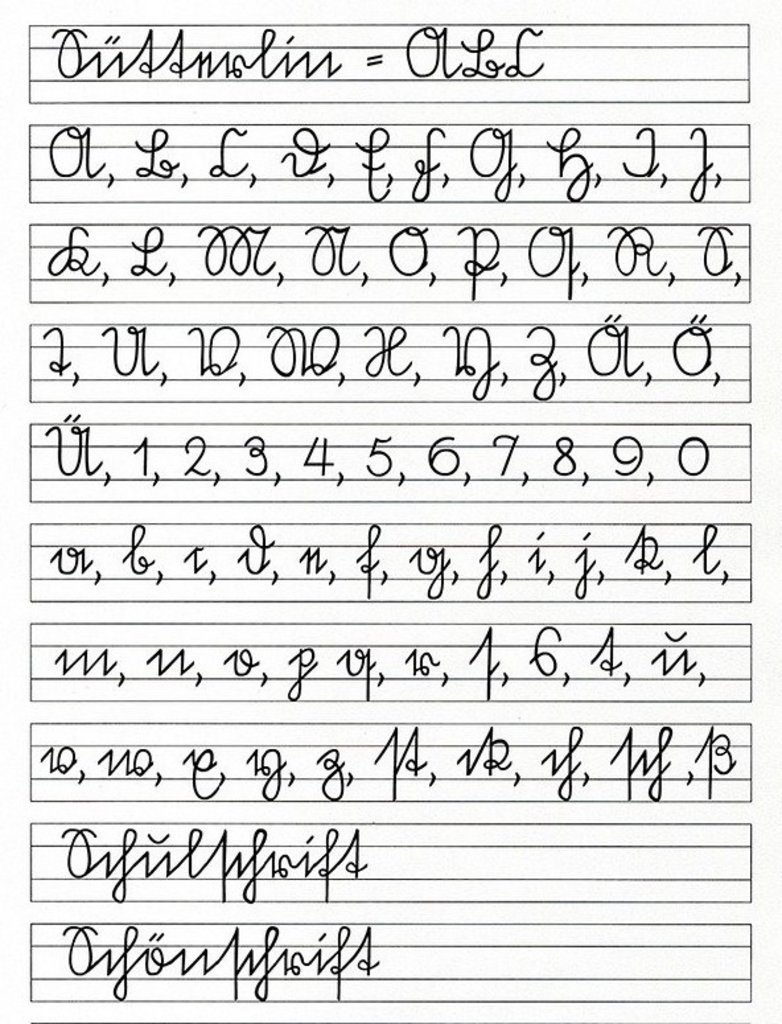 Sütterlin = ABC
A, B, C, D, E, F, G, H, I, J,
K, L, M, N, O, P, Q, R, S,
T, U, V, W, X, Y, Z, Ä, Ö,
Ü, 1, 2, 3, 4, 5, 6, 7, 8, 9, 0
a, b, c, d, e, f, g, h, i, j, k, l,
m, n, o, p q, r, s, s, t, u,
v, w, x, y, z, st, ck, ch, sch, ß
Schulschrift
Schönschrift